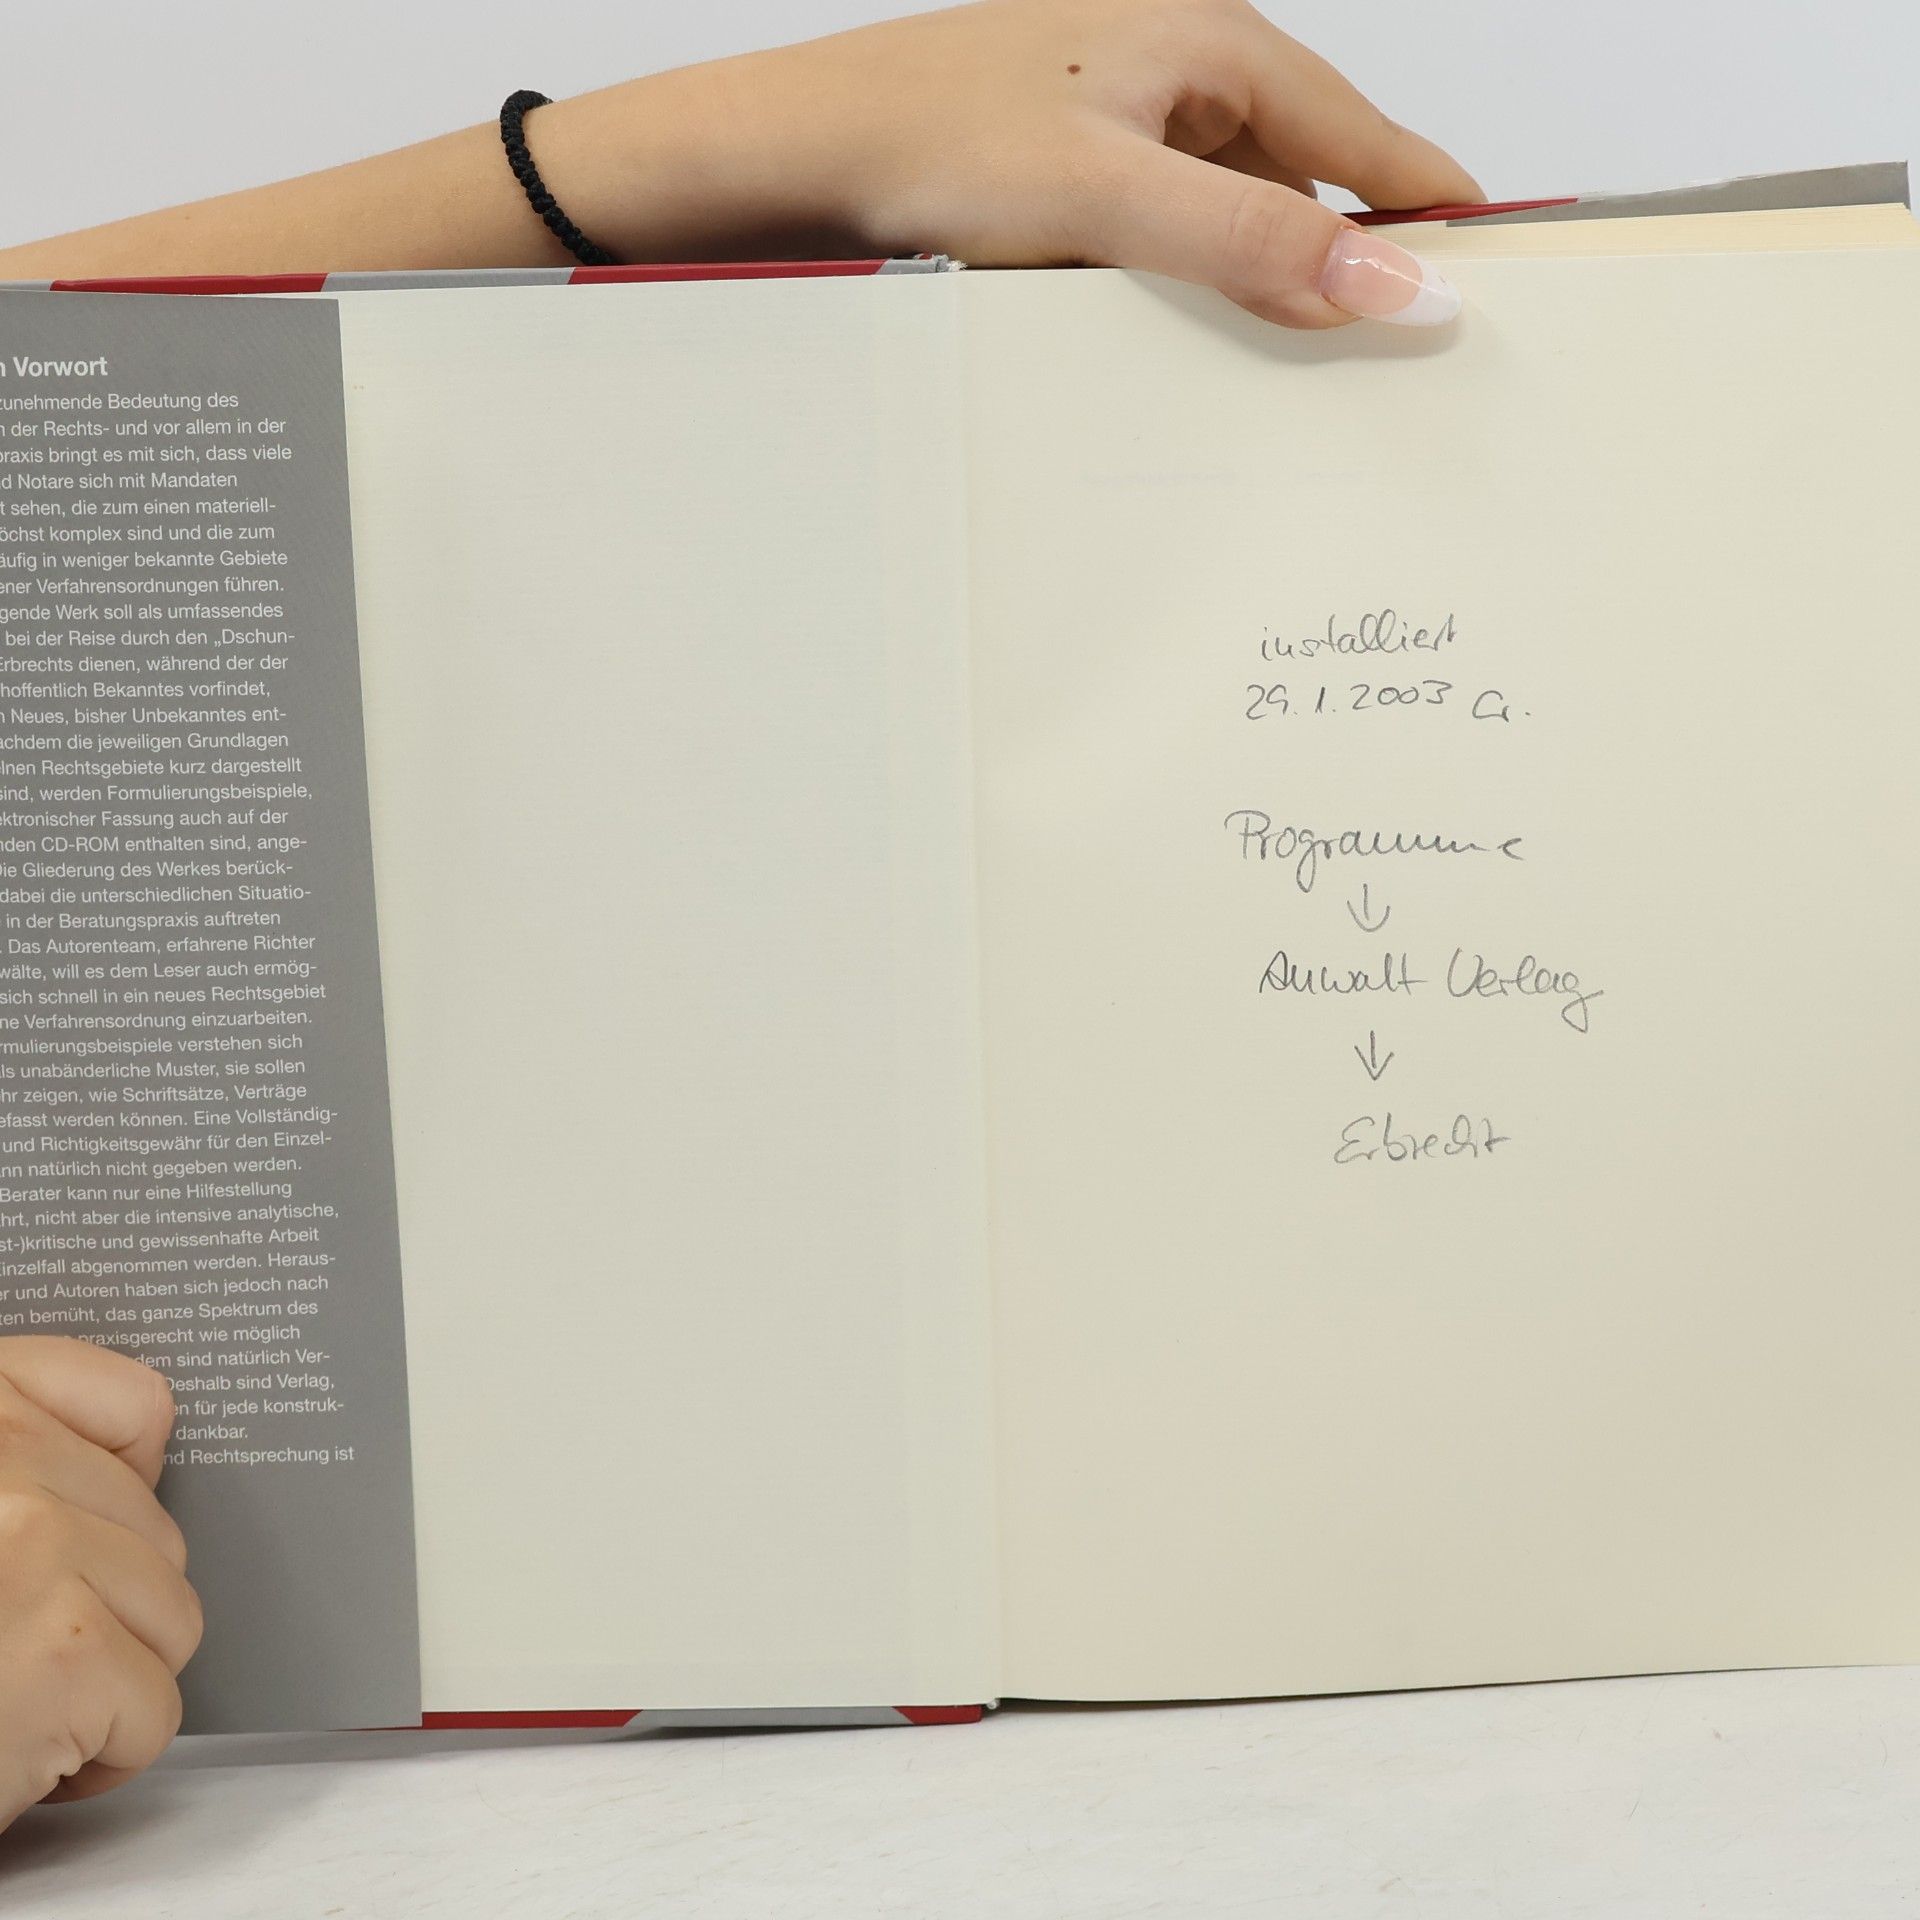 Vorwort
zunehmende Bedeutung des
der Rechts- und vor allem in der
praxis bringt es mit sich, dass viele
d Notare sich mit Mandaten
t sehen, die zum einen materiell-
öchst komplex sind und die zum
äufig in weniger bekannte Gebiete
ener Verfahrensordnungen führen.
gende Werk soll als umfassendes
bei der Reise durch den „Dschun-
Erbrechts dienen, während der der
hoffentlich Bekanntes vorfindet,
Neues, bisher Unbekanntes ent-
achdem die jeweiligen Grundlagen
elnen Rechtsgebiete kurz dargestellt
sind, werden Formulierungsbeispiele,
ektronischer Fassung auch auf der
nden CD-ROM enthalten sind, ange-
Die Gliederung des Werkes berück-
dabei die unterschiedlichen Situatio-
in der Beratungspraxis auftreten
. Das Autorenteam, erfahrene Richter
wälte, will es dem Leser auch ermög-
sich schnell in ein neues Rechtsgebiet
ne Verfahrensordnung einzuarbeiten.
rmulierungsbeispiele verstehen sich
ls unabänderliche Muster, sie sollen
hr zeigen, wie Schriftsätze, Verträge
efasst werden können. Eine Vollständig-
und Richtigkeitsgewähr für den Einzel-
nn natürlich nicht gegeben werden.
Berater kann nur eine Hilfestellung
hrt, nicht aber die intensive analytische,
st-)kritische und gewissenhafte Arbeit
Einzelfall abgenommen werden. Heraus-
er und Autoren haben sich jedoch nach
ten bemüht, das ganze Spektrum des
praxisgerecht wie möglich
dem sind natürlich Ver-
Deshalb sind Verlag,
en für jede konstruk-
dankbar.
nd Rechtsprechung ist
installiert
29.1.2003 G.
Programme
↓
Anwalt Verlag
↓
Erbrecht